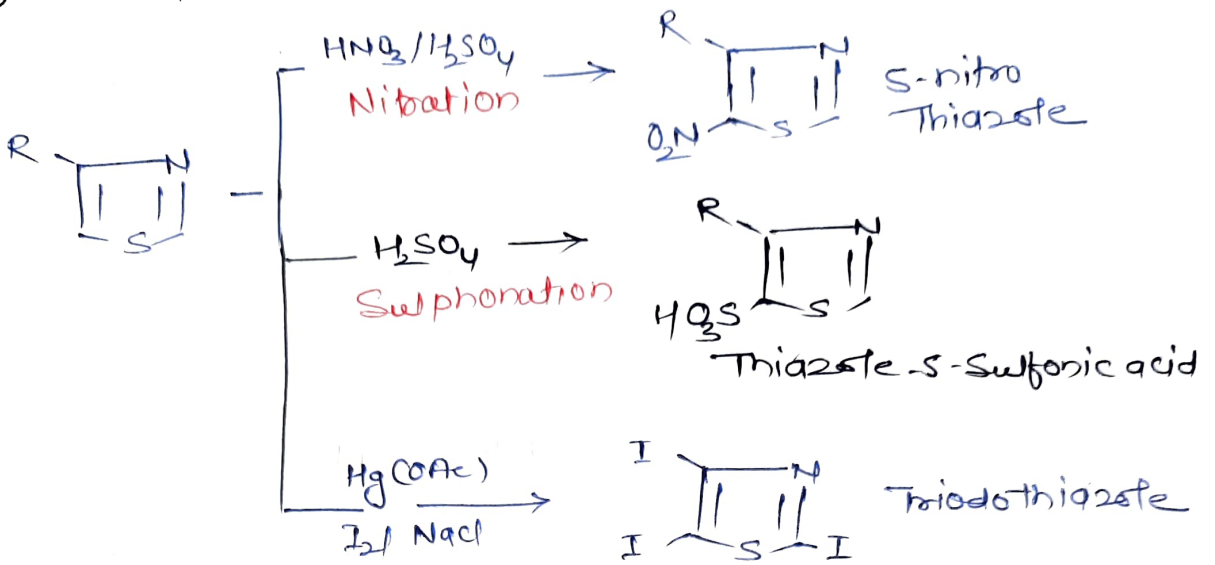 HNO3/H2SO4
Nitration
R
N
S
O2N
5-nitro
Thiazole
R
N
S
H2SO4
Sulphonation
R
N
S
HO3S
Thiazole-5-Sulfonic acid
Hg(OAc)
I2/ NaCl
I
N
I
S
I
Triodothiazole